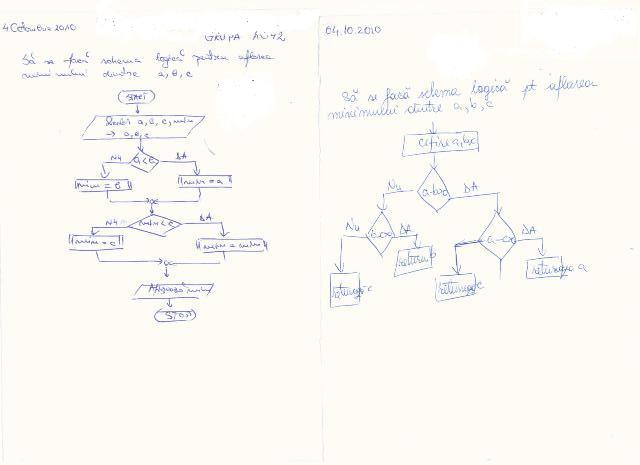 4 Octombrie 2010
GRUPA
Să se facă schema logică pentru aflarea
minimului dintre a, b, c
START
a, b, c, min
→ a, b, c
a < b
NU
DA
min = b
min = a
min < c
NU
DA
min = c
min = min
Afișează min
STOP
04.10.2010
Să se facă schema logică pt aflarea
minimului dintre a, b, c
citire a, b, c
Nu
DA
Nu
DA
DA
returnez b
returnez c
returnez c
returnez a